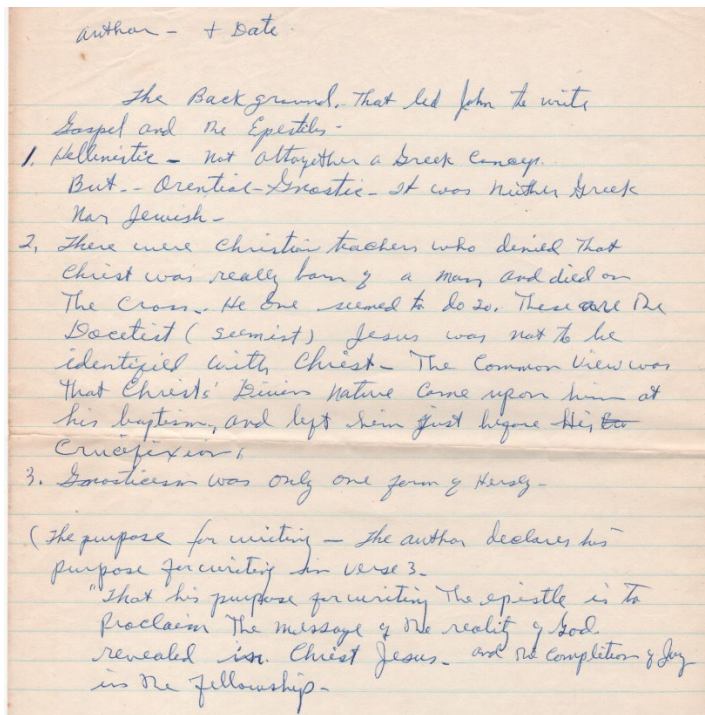 author - + Date
The Background. That led John to write
Gospel and the Epistles -
1. Hellinistic - not altogether a Greek Concep.
But - Orential - Gnostic - It was niether Greek
Nor Jewish -
2, There were Christian teachers who denied That
Christ was really born of a man, and died on
The Cross. He one seemed to do so. These are the
Docetist ( Seemist ) Jesus was not to be
identified with Christ - The Common View was
That Christs' Divine Nature Came upon him at
his baptism, and left him just before His
Crucifixion,
3. Gnosticism was only one form of Hersy -
( The purpose for writing - The author declares his
purpose for writing in verse 3 -
"That his purpose for writing The epistle is to
Proclaim The message of the reality of God
revealed in Christ Jesus - and the Completion of Joy
in the fellowship -